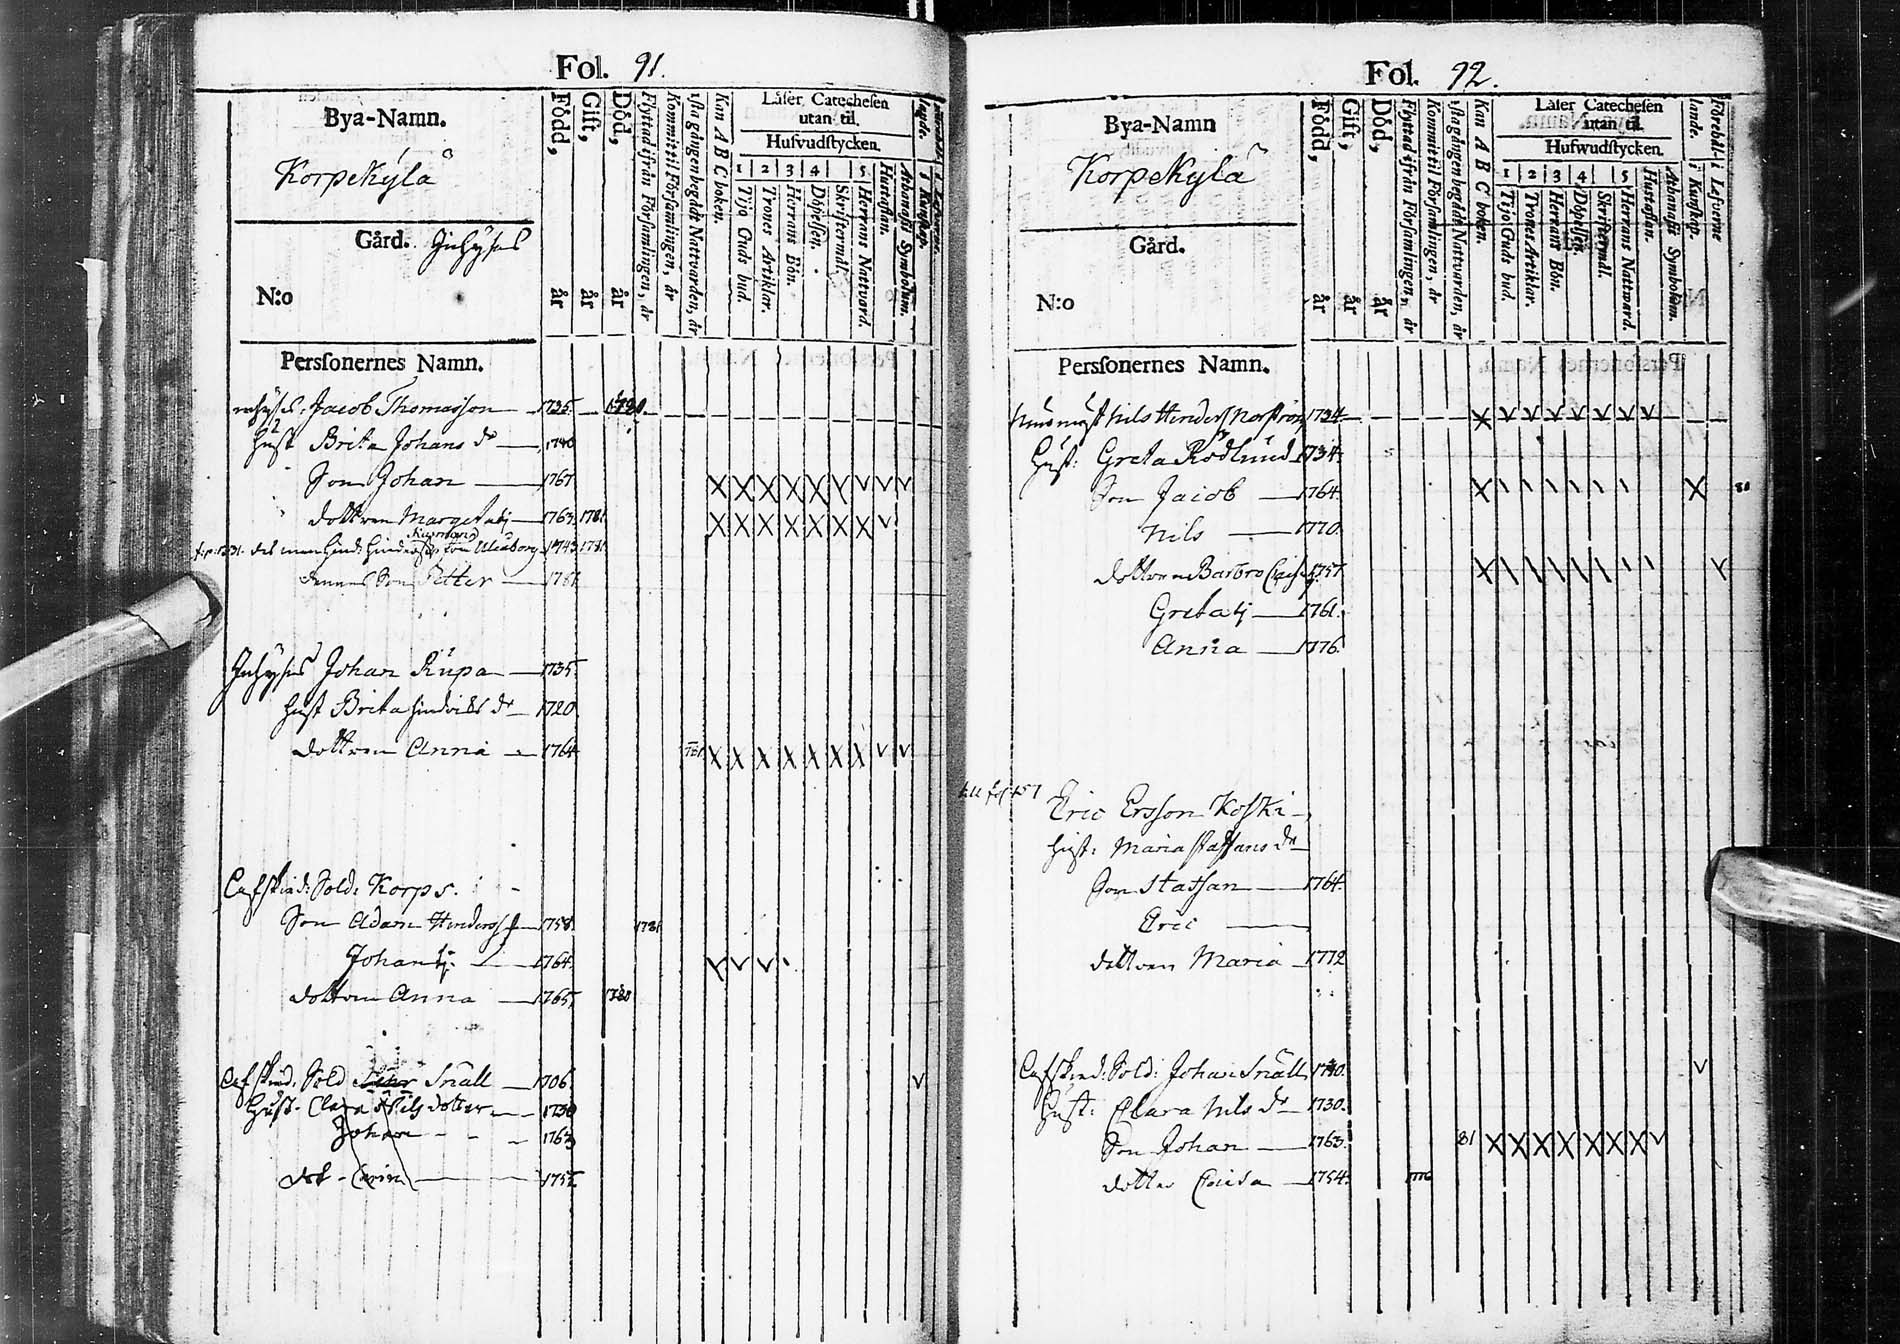 Fol. 91.
Bya-Namn.
Korpekylä
Gård. Inhyses
N:o
Född, år
Gift, år
Död, år
Flyttad ifrån Församlingen, år
Kommit til Församlingen, år
1sta gången begådt Nattvarden, år
Kan A B C boken.
Låser Catechesen utan til.
Hufvudstycken.
1 2 3 4 5
Tijo Guds bud.
Trones Artiklar.
Herrans Bön.
Döpelsen.
Skriftermål.
Herrans Nattvard.
Hustaflan.
Athanasii Symbolum.
Perssonernes Namn.
Jacob Thomasson 1725.
Hust Brita Johans dr 1740
Son Johan 1767
dottren Margeta 1763. 1781.
fol: 131. Uleåborg 1743. 1781.
Son Petter 1761
Inhyses Johan Rupa 1735.
hust Brita Hindrics dr 1720
dottren Anna 1764
Cafskied: Sold: Korps.
Son Adam Henderss 1758. 1781
Johan 1764.
dottren Anna 1765. 1780
Cafskied: Sold Snäll 1706.
Hust. Clara Nils dotter 1730
Johan 1763
dot. Carin 1752
Fol. 92.
Bya-Namn
Korpekylä
Gård.
N:o
Född, år
Gift, år
Död, år
Flyttad ifrån Församlingen, år
Kommit til Församlingen, år
1sta gången begådt Nattvarden, år
Kan A B C boken.
Låser Catechesen utan til.
Hufwudstycken.
1 2 3 4 5
Tijo Guds bud.
Trones Artiklar.
Herrans Bön.
Döpelsen.
Skriftermål.
Herrans Nattward.
Hustaflan.
Athanasii Symbolum.
Perssonernes Namn.
Nils Henderss Norström 1734
Hust: Greta Rödlund 1734.
Son Jacob 1764. 81
Nils 1770.
dottren Barbro Caisa 1757
Greta 1761.
Anna 1776.
fol 157
Eric Ersson Koski
hust: Maria Staffans dr
Son Staffan 1764.
Eric
dottren Maria 1772
Cafskied: Sold: Johan Snäll 1710.
Hust: Clara Nils dr 1730.
Son Johan 1763. 81
dotter Caisa 1754. 1776